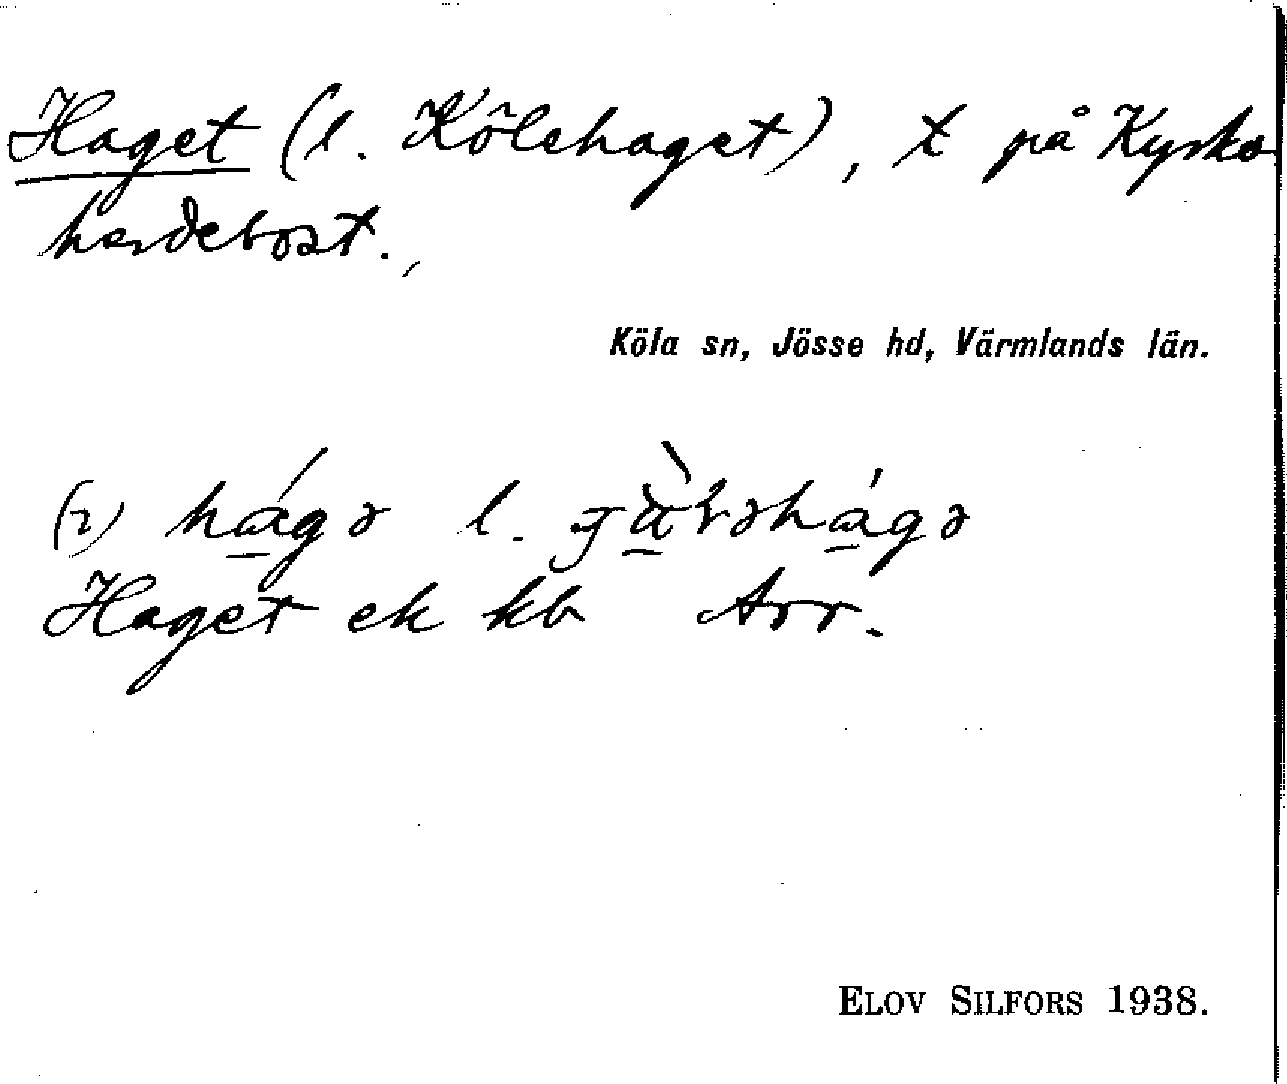 Haget (l. Kölehaget), t på Kyrko
herdebost.,
Köla sn, Jösse hd, Värmlands län.
(2) hágə l.
Haget ek kb Arr.
ELOV SILFORS 1938.